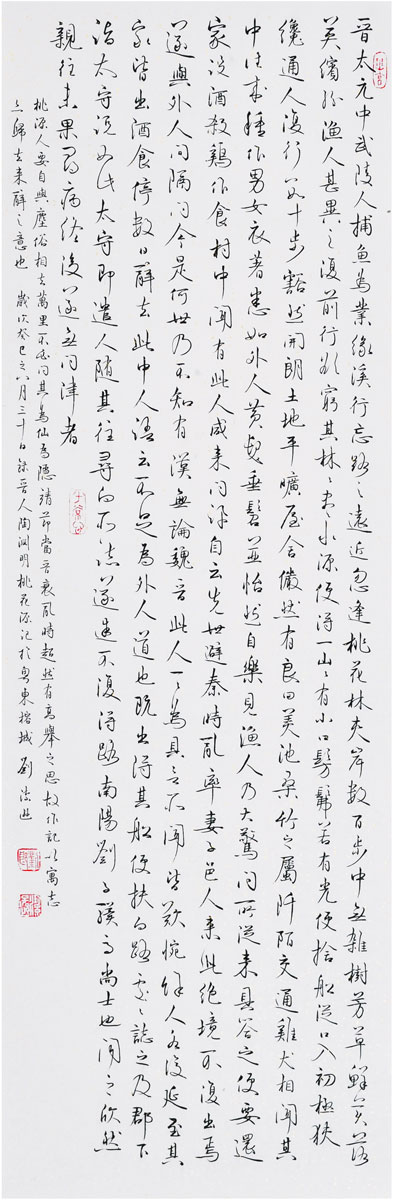 晉太元中武陵人捕魚為業緣溪行忘路之遠近忽逢桃花林夾岸數百步中無雜樹芳草鮮美落
英繽紛漁人甚異之復前行欲窮其林〻盡水源便得一山〻有小口髣髴若有光便捨船從口入初極狹
纔通人復行數十步豁然開朗土地平曠屋舍儼然有良田美池桑竹之屬阡陌交通雞犬相聞其
中往來種作男女衣著悉如外人黃髮垂髫並怡然自樂見漁人乃大驚問所從來具答之便要還
家設酒殺鷄作食村中聞有此人咸來問訊自云先世避秦時亂率妻子邑人來此絕境不復出焉
遂與外人間隔問今是何世乃不知有漢無論魏晉此人一一為具言所聞皆歎惋餘人各復延至其
家皆出酒食停數日辭去此中人語云不足為外人道也既出得其船便扶向路處〻誌之及郡下
詣太守說如此太守即遣人隨其往尋向所誌遂迷不復得路南陽劉子驥高尚士也聞之欣然
親往未果尋病終後遂無問津者
桃源人要自與塵俗相去萬里不必問其為仙為隱靖節當晉衰亂時超然有高舉之思故作記以寓志
亦歸去來辭之意也 歲次癸巳之八月三十日錄晉人陶淵明桃花源記於粵東榕城 劉